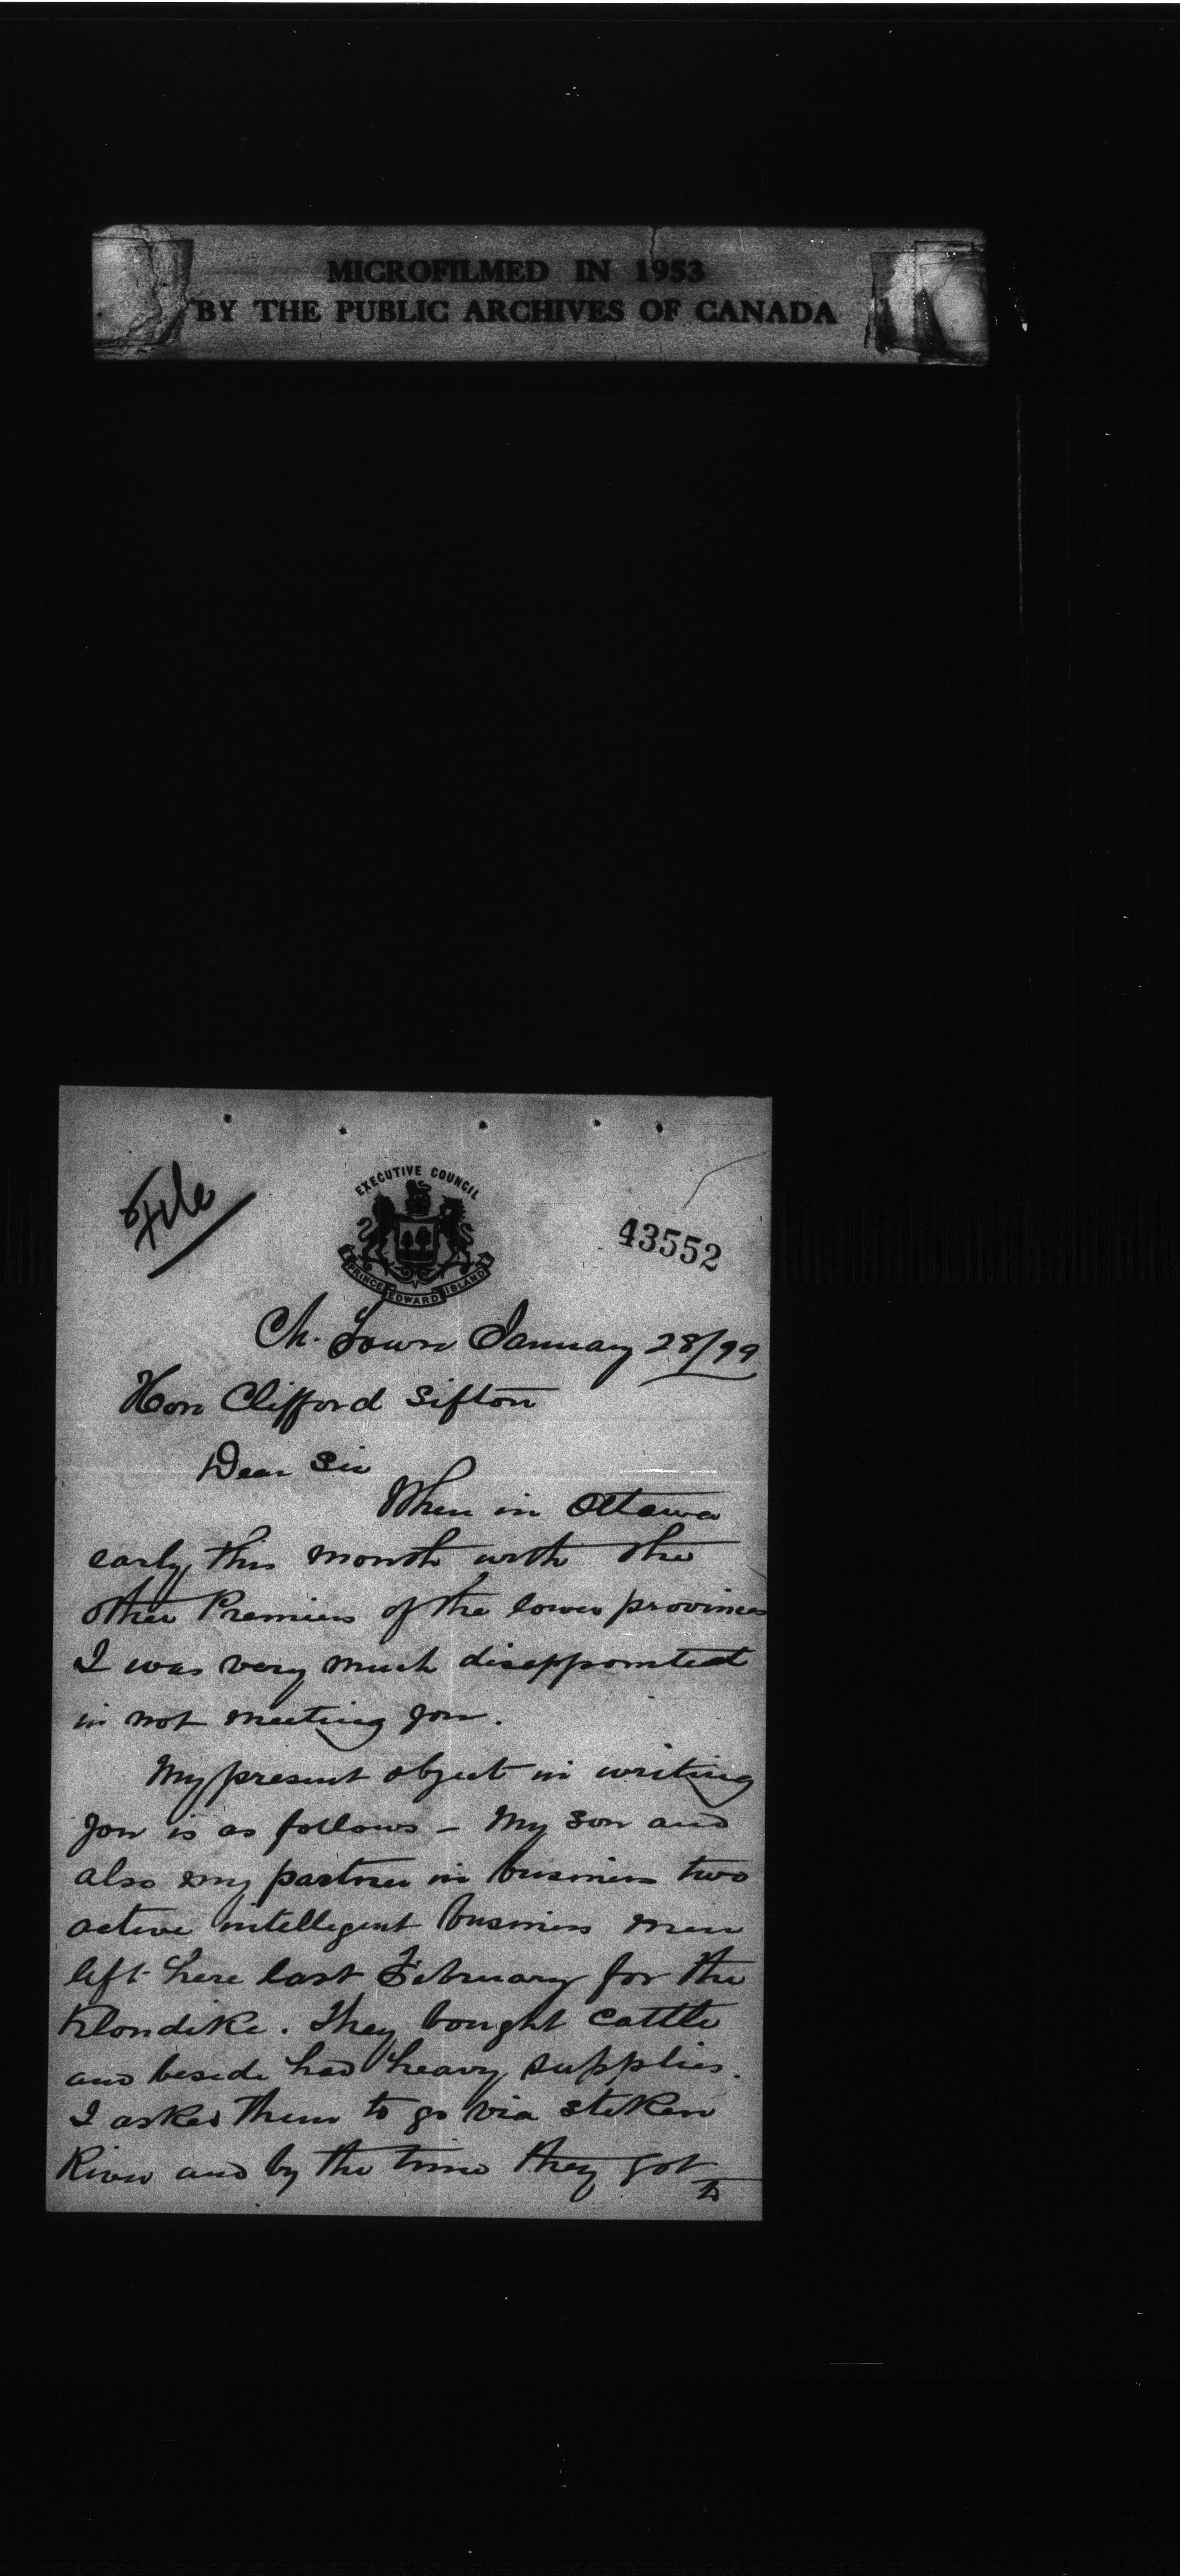 MICROFILMED IN 1953
BY THE PUBLIC ARCHIVES OF CANADA
File
EXECUTIVE COUNCIL
PRINCE EDWARD ISLAND
43552
Ch. Town January 28/99
Hon Clifford Sifton
Dear Sir
When in Ottawa
early this month with the
other Premiers of the lower provinces
I was very much disappointed
in not meeting you.
My present object in writing
you is as follows - My son and
also my partner in business two
active intelligent business men
left here last February for the
Klondike. They bought cattle
and beside had heavy supplies.
I asked them to go via Stiken
River and by the time they got
to